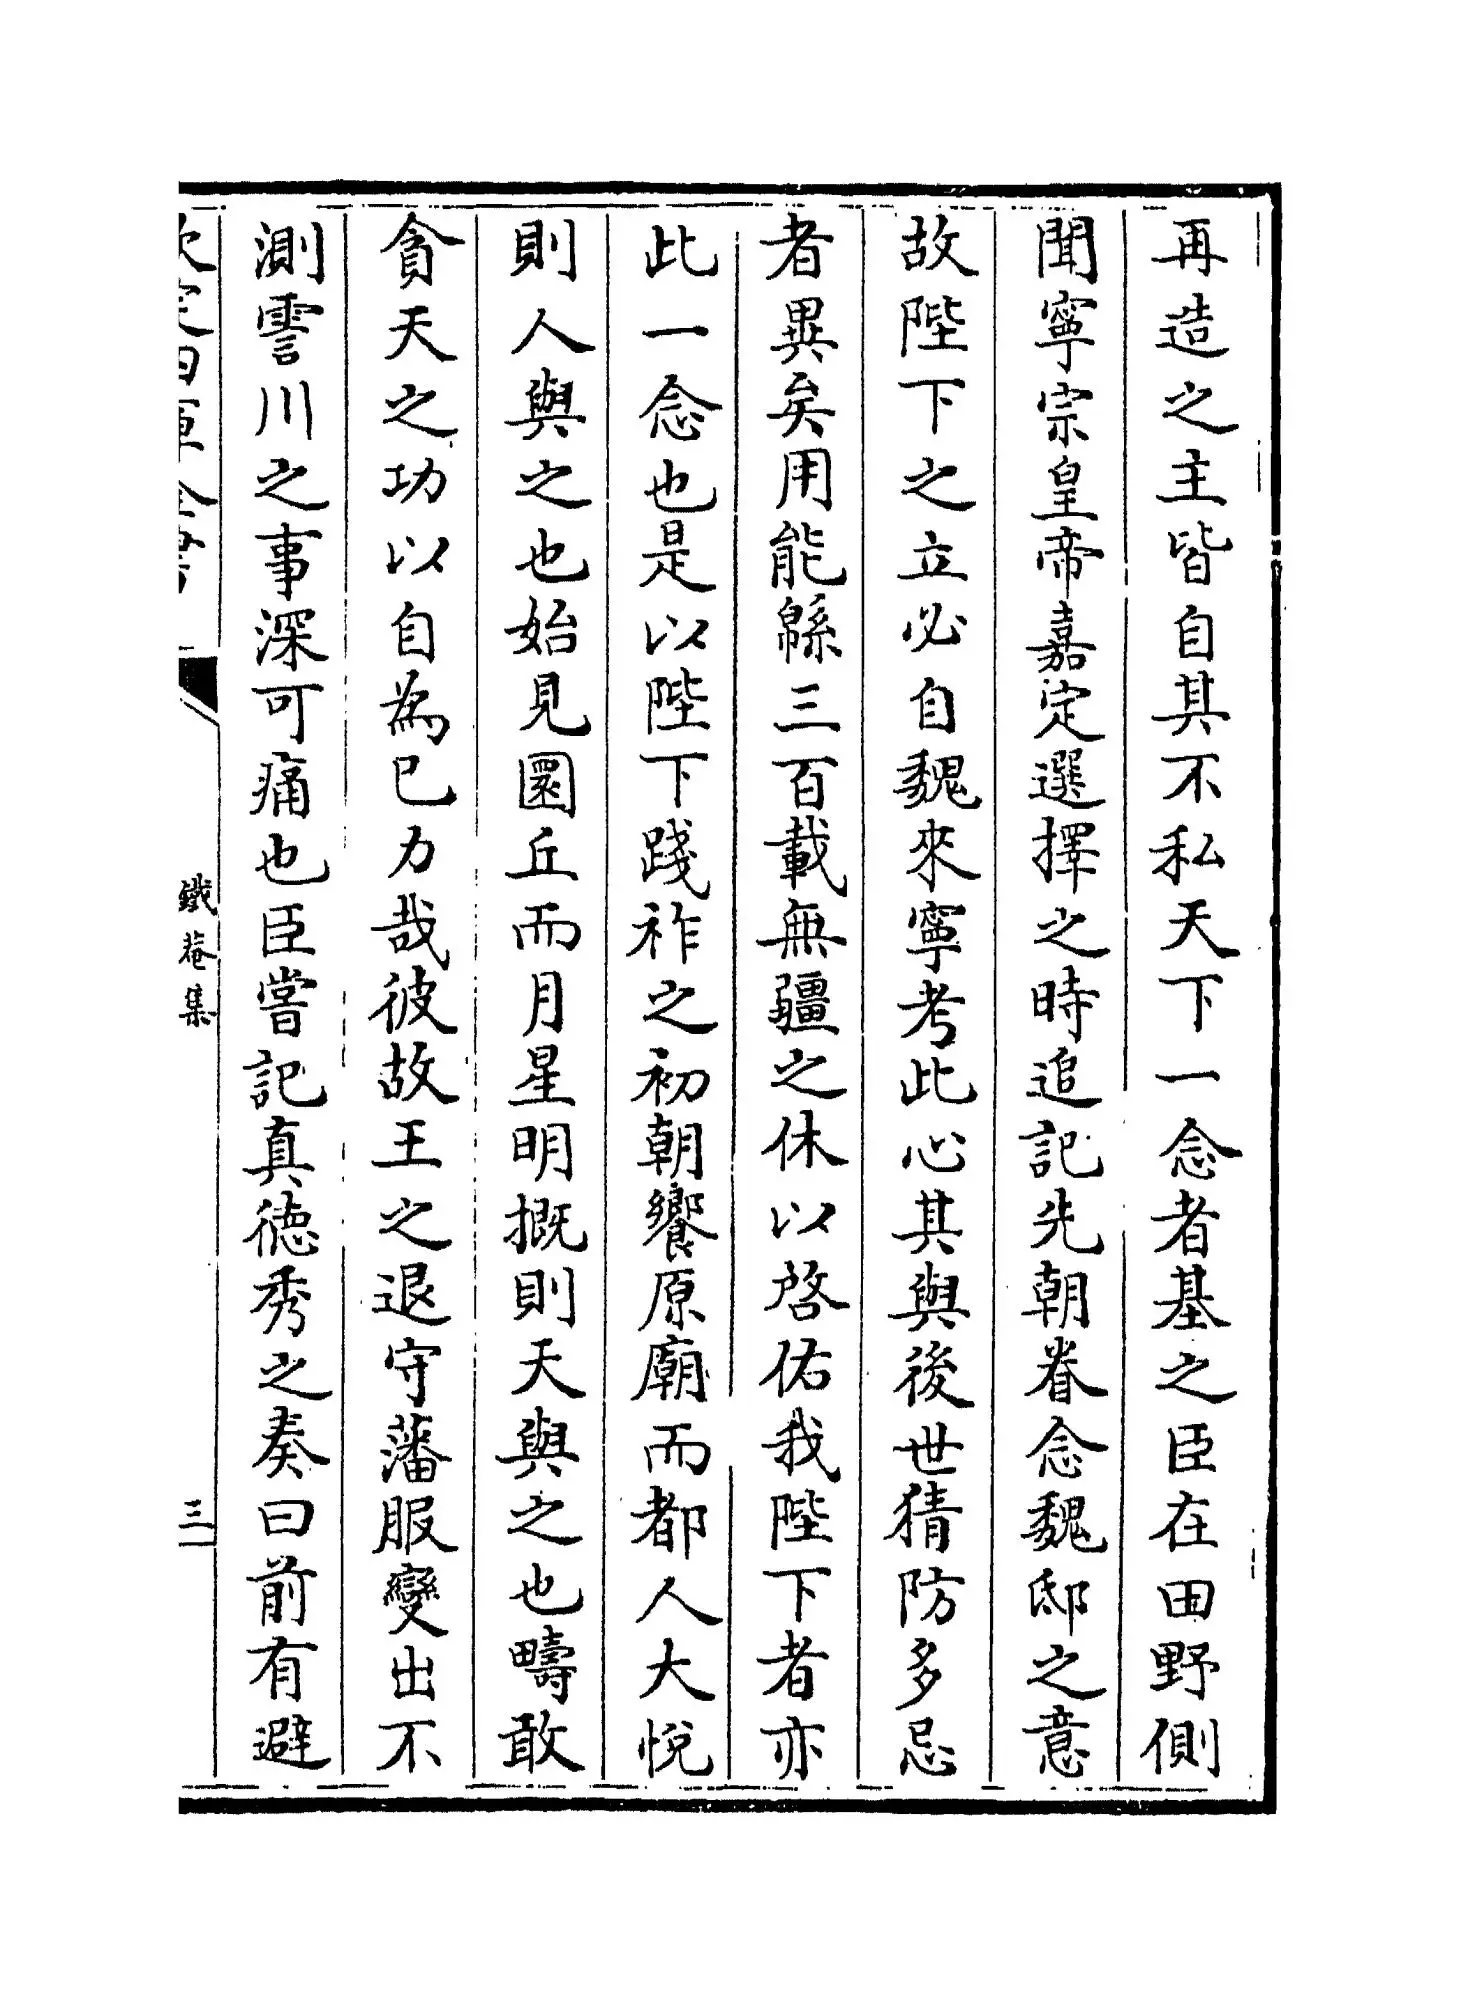 再造之主皆自其不私天下一念者基之臣在田野側
聞寧宗皇帝嘉定選擇之時追記先朝眷念魏邸之意
故陛下之立必自魏來寧考此心其與後世猜防多忌
者異矣用能緜三百載無疆之休以啓佑我陛下者亦
此一念也是以陛下踐祚之初朝饗原廟而都人大悅
則人與之也始見圜丘而月星明概則天與之也疇敢
貪天之功以自為已力哉彼故王之退守藩服變出不
測霅川之事深可痛也臣嘗記真德秀之奏曰前有避
欽定四庫全書
鐵菴集
三